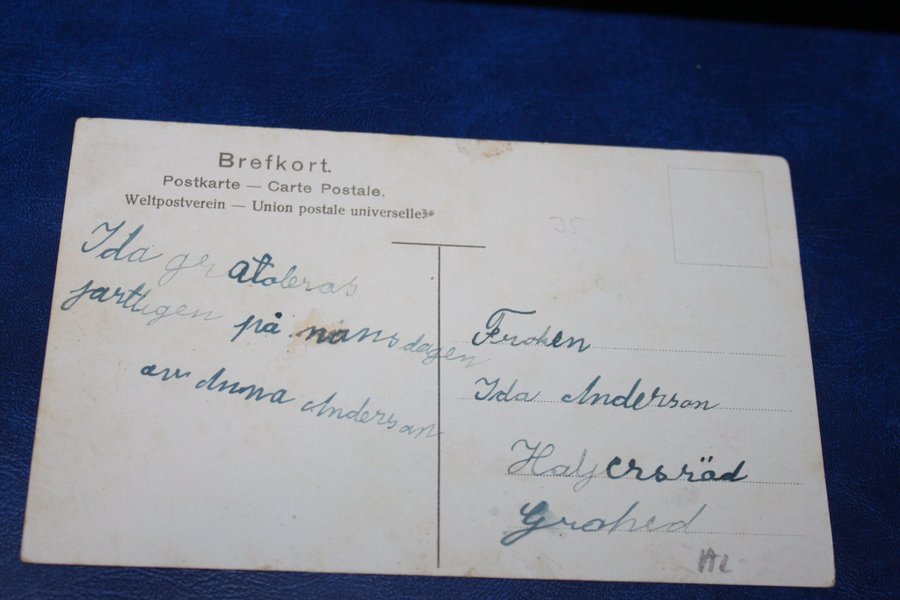 Brefkort.
Postkarte — Carte Postale.
Weltpostverein — Union postale universelle.
35
Ida gratoleras
jartligen på namsdagen
av Anna Anderson
Froken
Ida Anderson
Haljersröd
Grohed
AL